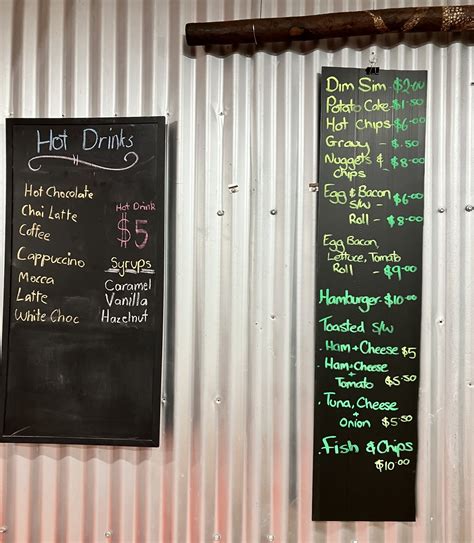 Hot Drinks
Hot Chocolate
Chai Latte
Coffee
Cappuccino
Mocca
Latte
White Choc
Hot Drink
$5
Syrups
Caramel
Vanilla
Hazelnut
Dim Sim - $2.00
Potato Cake - $1.50
Hot Chips - $6.00
Gravy - $.50
Nuggets & - $8.00
chips
Egg & Bacon
s/w - $6.00
Roll - $8.00
Egg Bacon,
Lettuce, Tomato
Roll - $9.00
Hamburger - $10.00
Toasted s/w
. Ham + Cheese $5
. Ham + Cheese
+
Tomato $5.50
. Tuna, Cheese
+
Onion $5.50
. Fish & Chips
$10.00